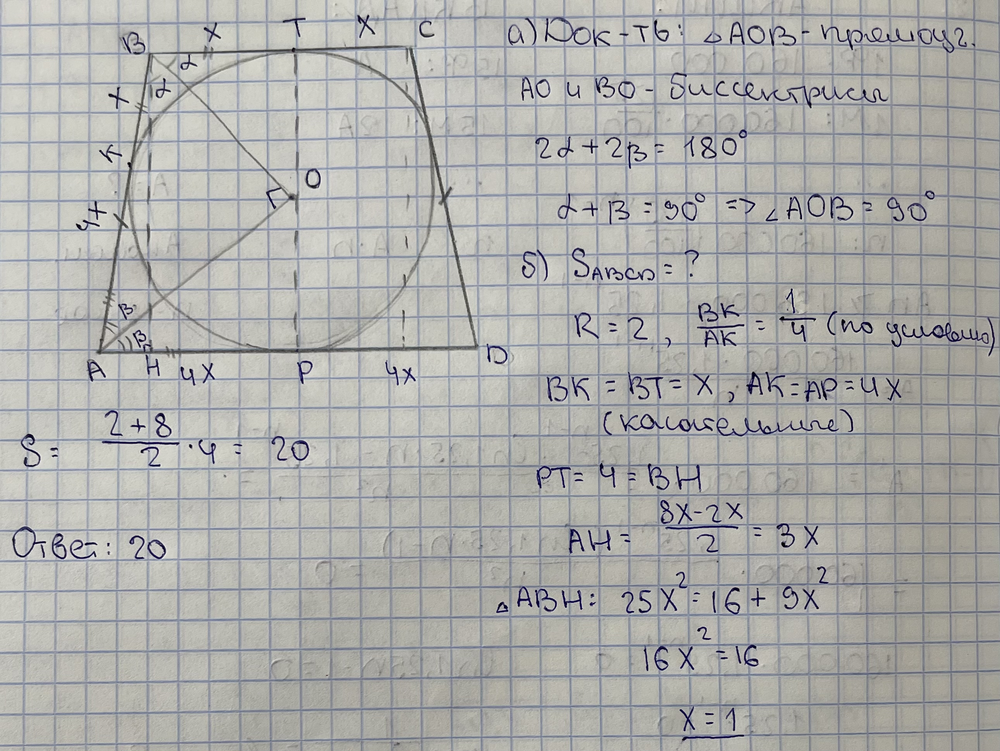 B X T X C
α
α
X
K
4x
O
B
B
A H 4X P 4X D
а) Док-ть: △AOB-прямоуг.
AO и BO - биссектрисы
2α + 2β = 180°
α + β = 90° => ∠AOB = 90°
б) S_ABCD = ?
R = 2, BK/AK = 1/4 (по условию)
BK = BT = X, AK = AP = 4X
(касательные)
PT = 4 = BH
AH = (8X-2X)/2 = 3X
△ABH: 25X² = 16 + 9X²
16X² = 16
X = 1
S = (2+8)/2 · 4 = 20
Ответ: 20